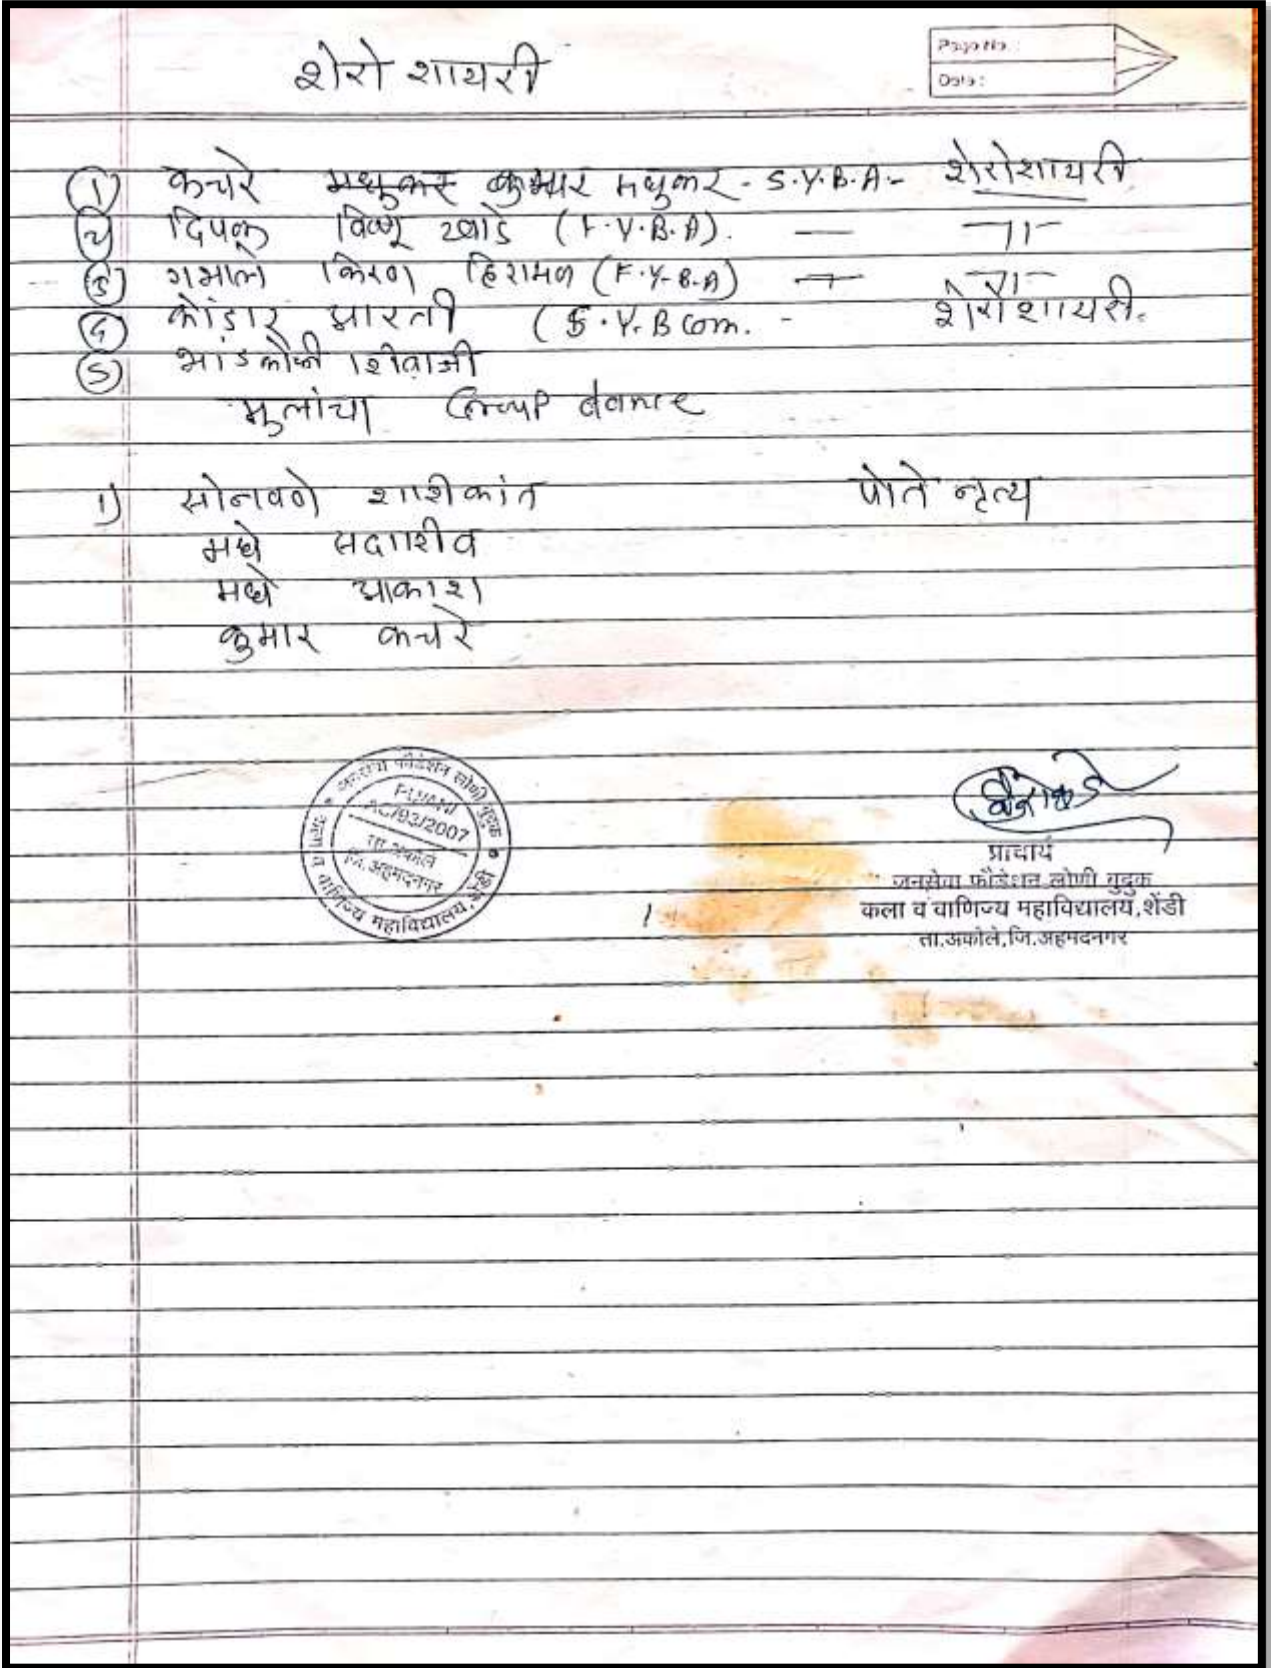 शेरो शायरी
Page No. :
Date :
① कचरे मधुकर कुमार मधुकर - S.Y.B.A - शेरोशायरी
② दिपक विष्णू खाडे (F.Y.B.A). — —11—
③ गभाले किरण हिरामण (F.Y.B.A) — —11—
④ कोंडार आरती (F.Y.B com. - शेरोशायरी.
⑤ भांडकोळी शिवाजी
मुलांचा Group dance
1) सोनवणे शाशीकांत पोते नृत्य
मधे सदाशीव
मधे प्रकाश
कुमार कचरे
जनसेवा फौंडेशन लोणी बुद्रुक
कला व वाणिज्य महाविद्यालय, शेंडी
PU/AN/
AC/93/2007
ता.अकोले
जि.अहमदनगर
प्राचार्य
जनसेवा फौंडेशन लोणी बुद्रुक
कला व वाणिज्य महाविद्यालय,शेंडी
ता.अकोले,जि.अहमदनगर